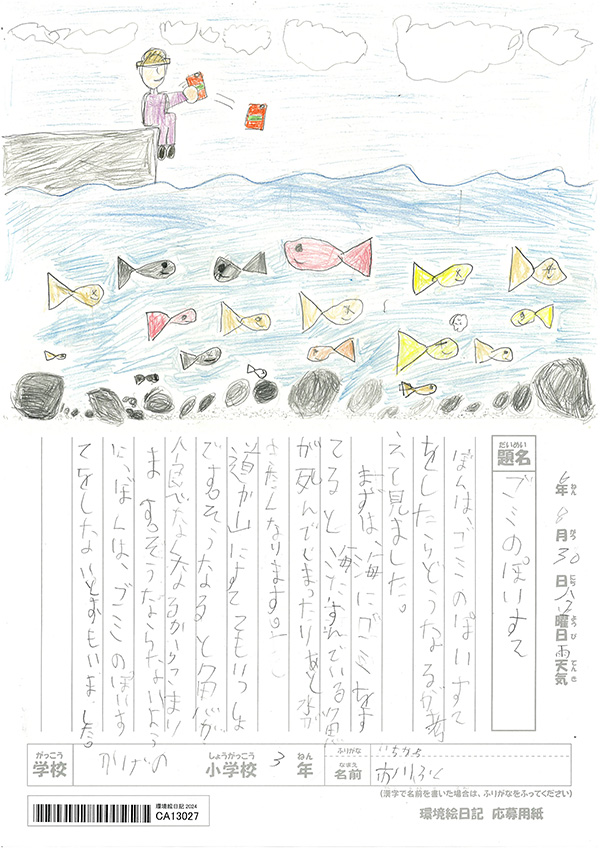 年 8月30日 曜日 雨 天気
ねん がつ にち ようび てんき
だいめい
題名 ゴミのぽいすて
ぼくは、ゴミのぽいすて
をしたらどうなるか考
えて見ました。
まずは、海にゴミをす
てると海にすんでいる魚
が死んでしまったりあと水が
きたなくなります。
道か山にすててもいっしょ
です。そうなると魚が
なくなるか
ます。そうならないよう
に、ぼくは、ゴミのぽいす
てをしないとおもいました。
がっこう
学校
しょうがっこう ねん
小学校 3 年
ふりがな
なまえ
名前 市川
(漢字で名前を書いた場合は、ふりがなをふってください)
環境絵日記 2024
CA13027
環境絵日記 応募用紙